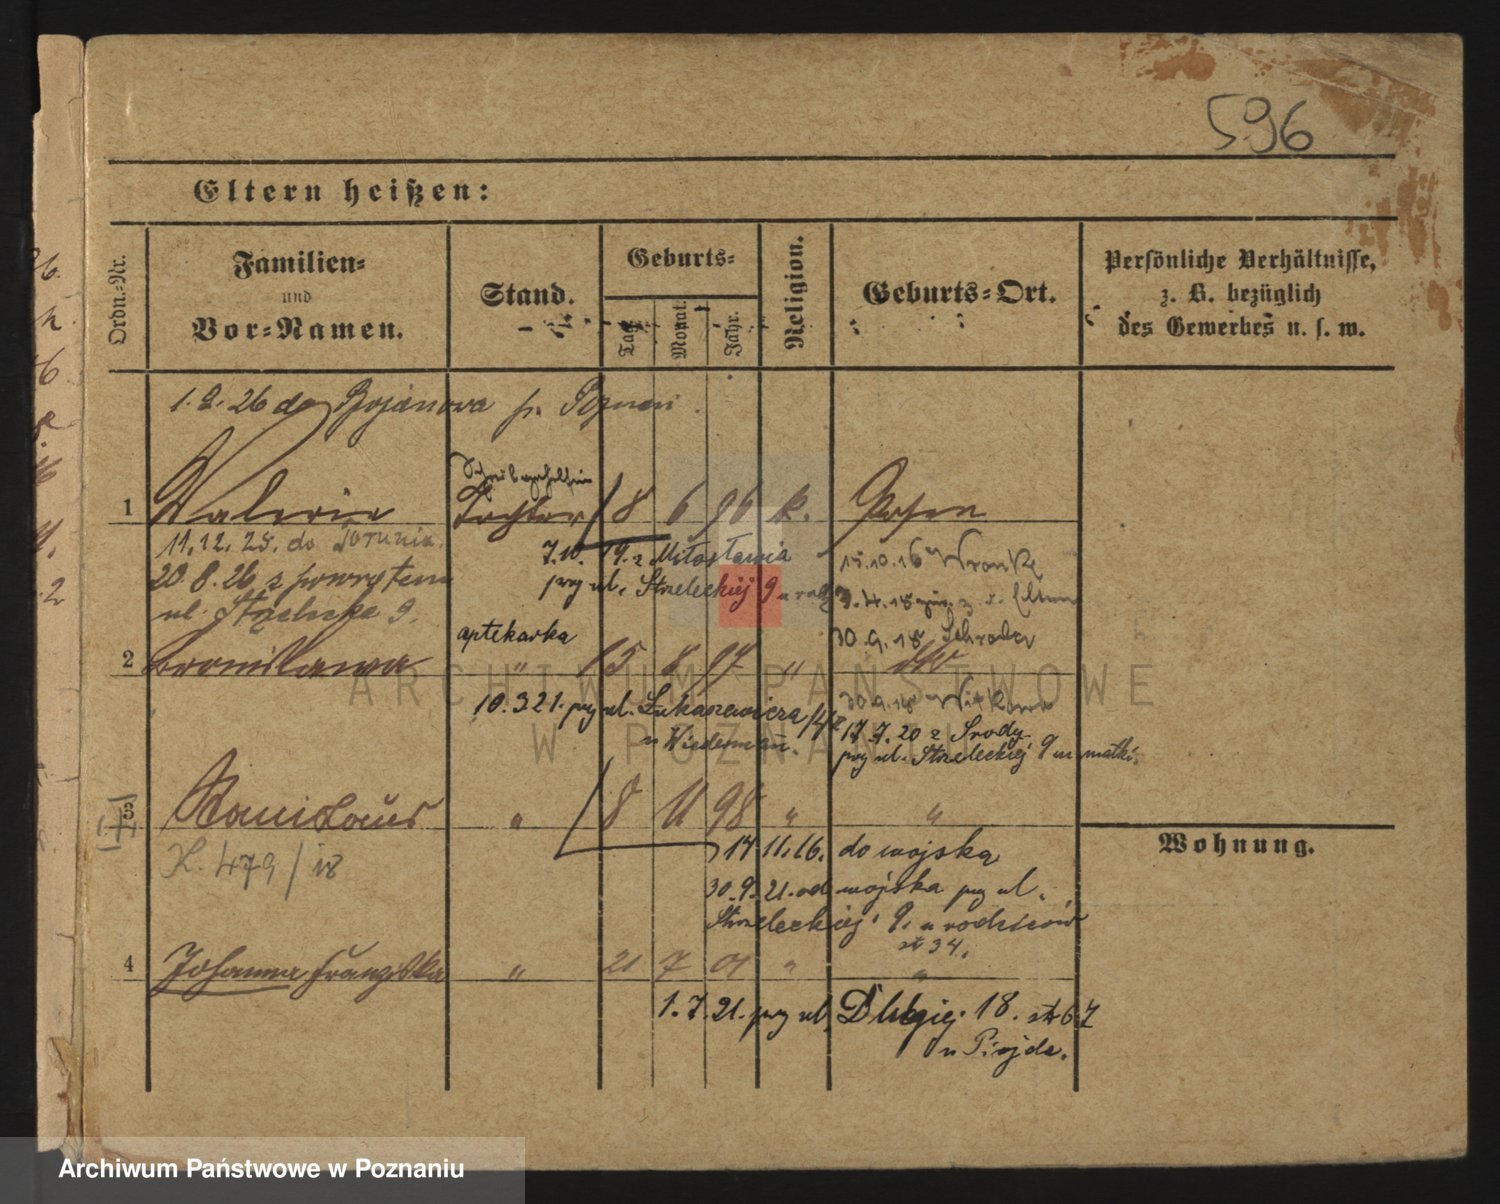 596
Eltern heißen:
Ordn.-Nr.
Familien-
und
Vor-Namen.
Stand.
Geburts-
Tag.
Monat.
Jahr.
Religion.
Geburts-Ort.
Persönliche Verhältnisse,
z. B. bezüglich
des Gewerbes u. s. w.
1. 9. 26 do Bojanowa p. Poznań
1 Valerie Tochter 18 6 96 k. Posen
11.12.25. do Torunia.
20 8. 26 z powrotem
ul. Strzelecka 9.
7.10. 19. z Miłosławia
przy ul. Strzeleckiej 9 u
15.10.16 Wronke
3.4.18 z. d. Eltern
30.9.18 Schroda
aptekarka
2 Bronislawa " 15 8 97 " dto
10.3 21. przy ul. Łukaszewicza
u Wiedeman.
30.9.18 Witkowo
17.7.20 z Środy
przy ul. Strzeleckiej 9 u matki.
3 Stanislaus " 8 11 98 " "
K. 479/18
14 11.16. do wojska
30.9.21. od wojska przy ul.
Strzeleckiej 9. u rodziców
34.
4 Johanna Franziska " 21 7 01 " "
1.7.21. przy ul. Długiej 18. 67
u Pizjda.
Wohnung.
ARCHIWUM PAŃSTWOWE
W POZNANIU
Archiwum Państwowe w Poznaniu